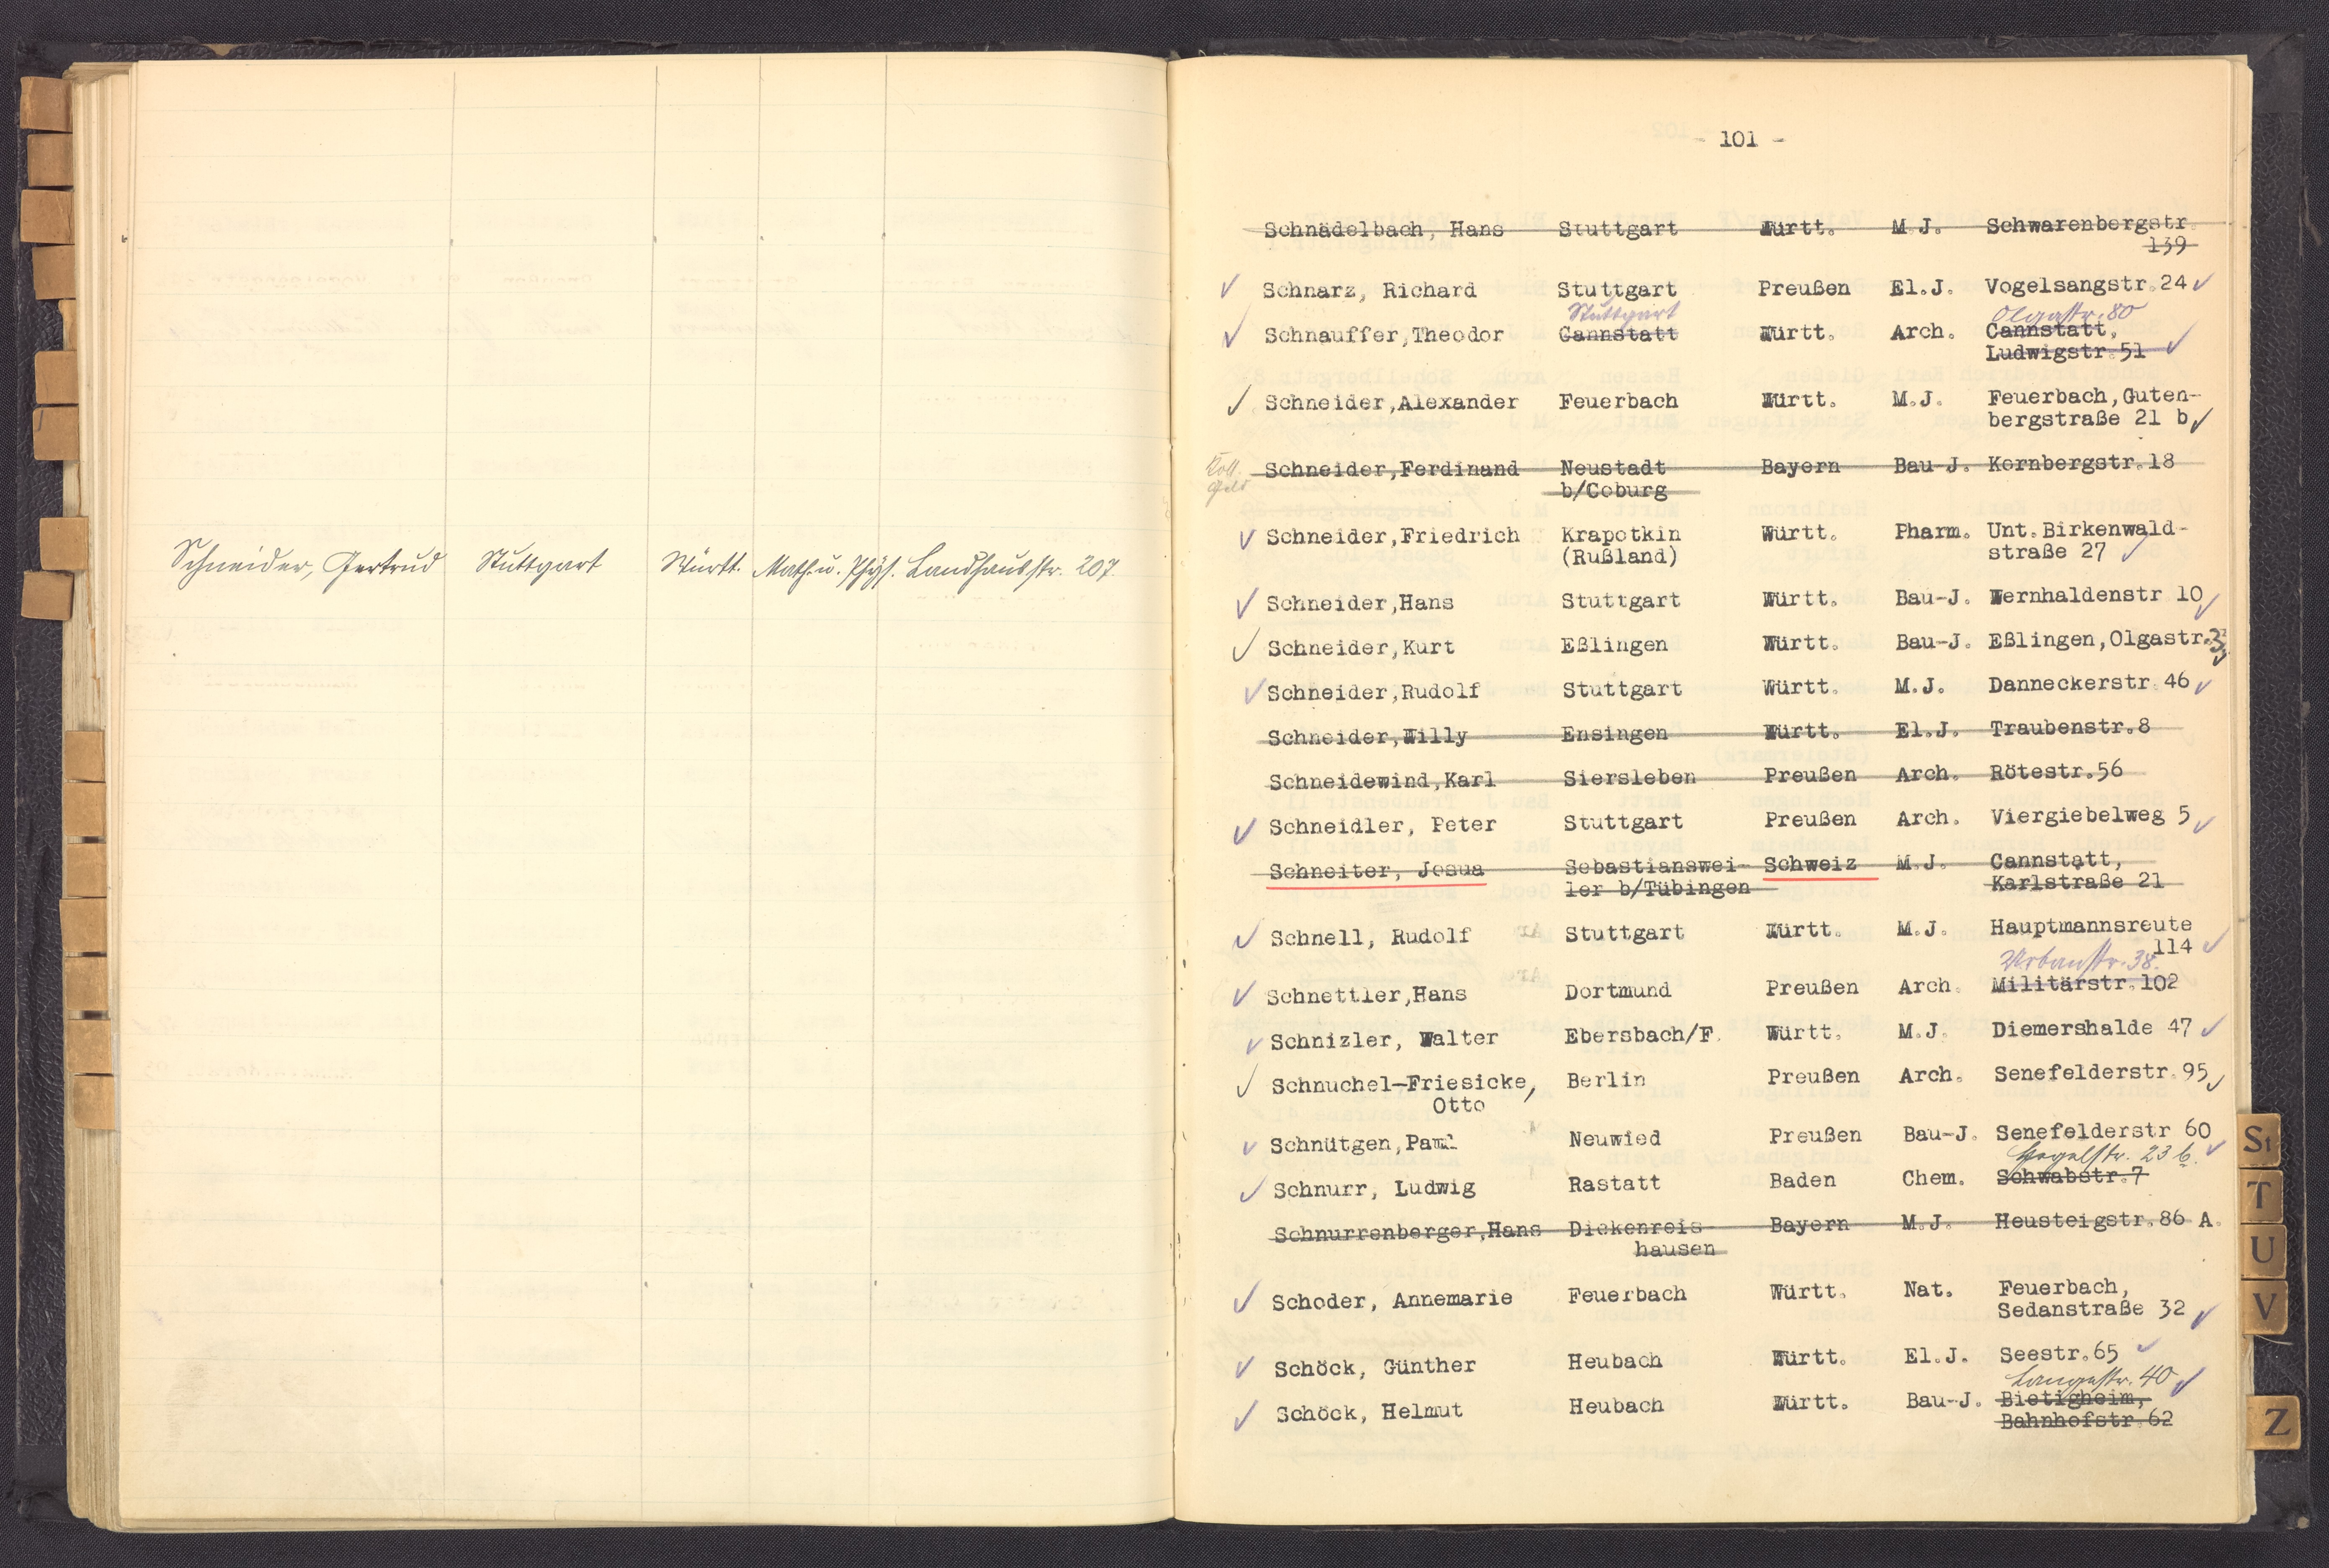 Schneider, Gertrud Stuttgart Württ. Math. u. Phys. Landhausstr. 207.
- 101 -
Schnädelbach, Hans Stuttgart Württ. M.J. Schwarenbergstr.
139
Schnarz, Richard Stuttgart Preußen El.J. Vogelsangstr.24
Stuttgart Olgastr. 80
Schnauffer,Theodor Cannstatt Württ. Arch. Cannstatt,
Ludwigstr.51
Schneider,Alexander Feuerbach Württ. M.J. Feuerbach,Guten-
bergstraße 21 b
Schneider,Ferdinand Neustadt Bayern Bau-J. Kornbergstr.18
b/Coburg
Schneider,Friedrich Krapotkin Württ. Pharm. Unt.Birkenwald-
(Rußland) straße 27
Schneider,Hans Stuttgart Württ. Bau-J. Wernhaldenstr 10
Schneider,Kurt Eßlingen Württ. Bau-J. Eßlingen,Olgastr.
Schneider,Rudolf Stuttgart Württ. M.J. Danneckerstr.46
Schneider,Willy Ensingen Württ. El.J. Traubenstr.8
Schneidewind,Karl Siersleben Preußen Arch. Rötestr.56
Schneidler, Peter Stuttgart Preußen Arch. Viergiebelweg 5
Schneiter, Josua Sebastianswei- Schweiz M.J. Cannstatt,
ler b/Tübingen Karlstraße 21
Schnell, Rudolf Stuttgart Württ. M.J. Hauptmannsreute
114
Urbanstr. 38.
Schnettler,Hans Dortmund Preußen Arch. Militärstr.102
Schnizler, Walter Ebersbach/F. Württ. M.J. Diemershalde 47
Schnuchel-Friesicke, Berlin Preußen Arch. Senefelderstr.95
Otto
Schnütgen,Paul Neuwied Preußen Bau-J. Senefelderstr 60
Hegelstr. 23 b.
Schnurr, Ludwig Rastatt Baden Chem. Schwabstr.7
Schnurrenberger,Hans Dickenreis- Bayern M.J. Heusteigstr.86 A.
hausen
Schoder, Annemarie Feuerbach Württ. Nat. Feuerbach,
Sedanstraße 32
Schöck, Günther Heubach Württ. El.J. Seestr.65
Langestr. 40
Schöck, Helmut Heubach Württ. Bau-J. Bietigheim,
Bahnhofstr.62
St
T
U
V
Z